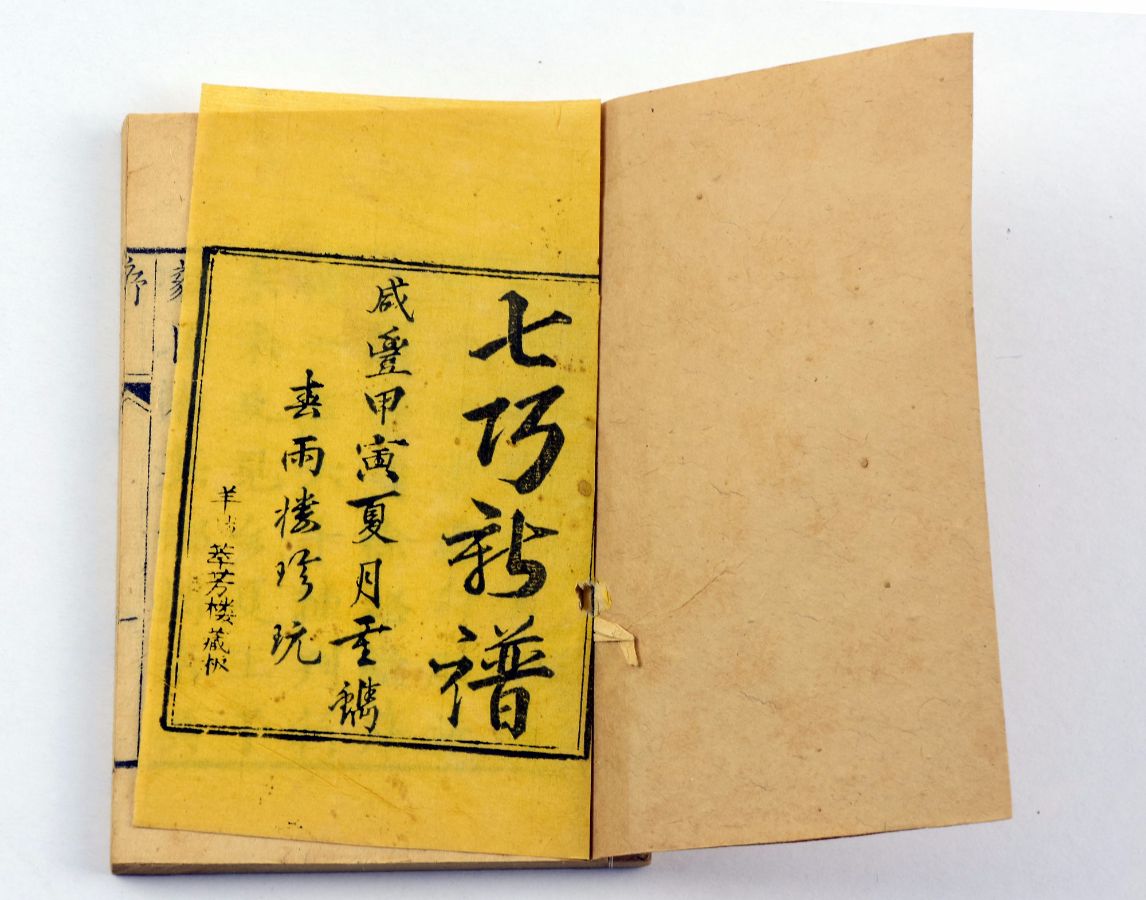 七巧新譜
咸豐甲寅夏月重鐫
春雨楼珍玩
羊城萃芳楼藏板
序